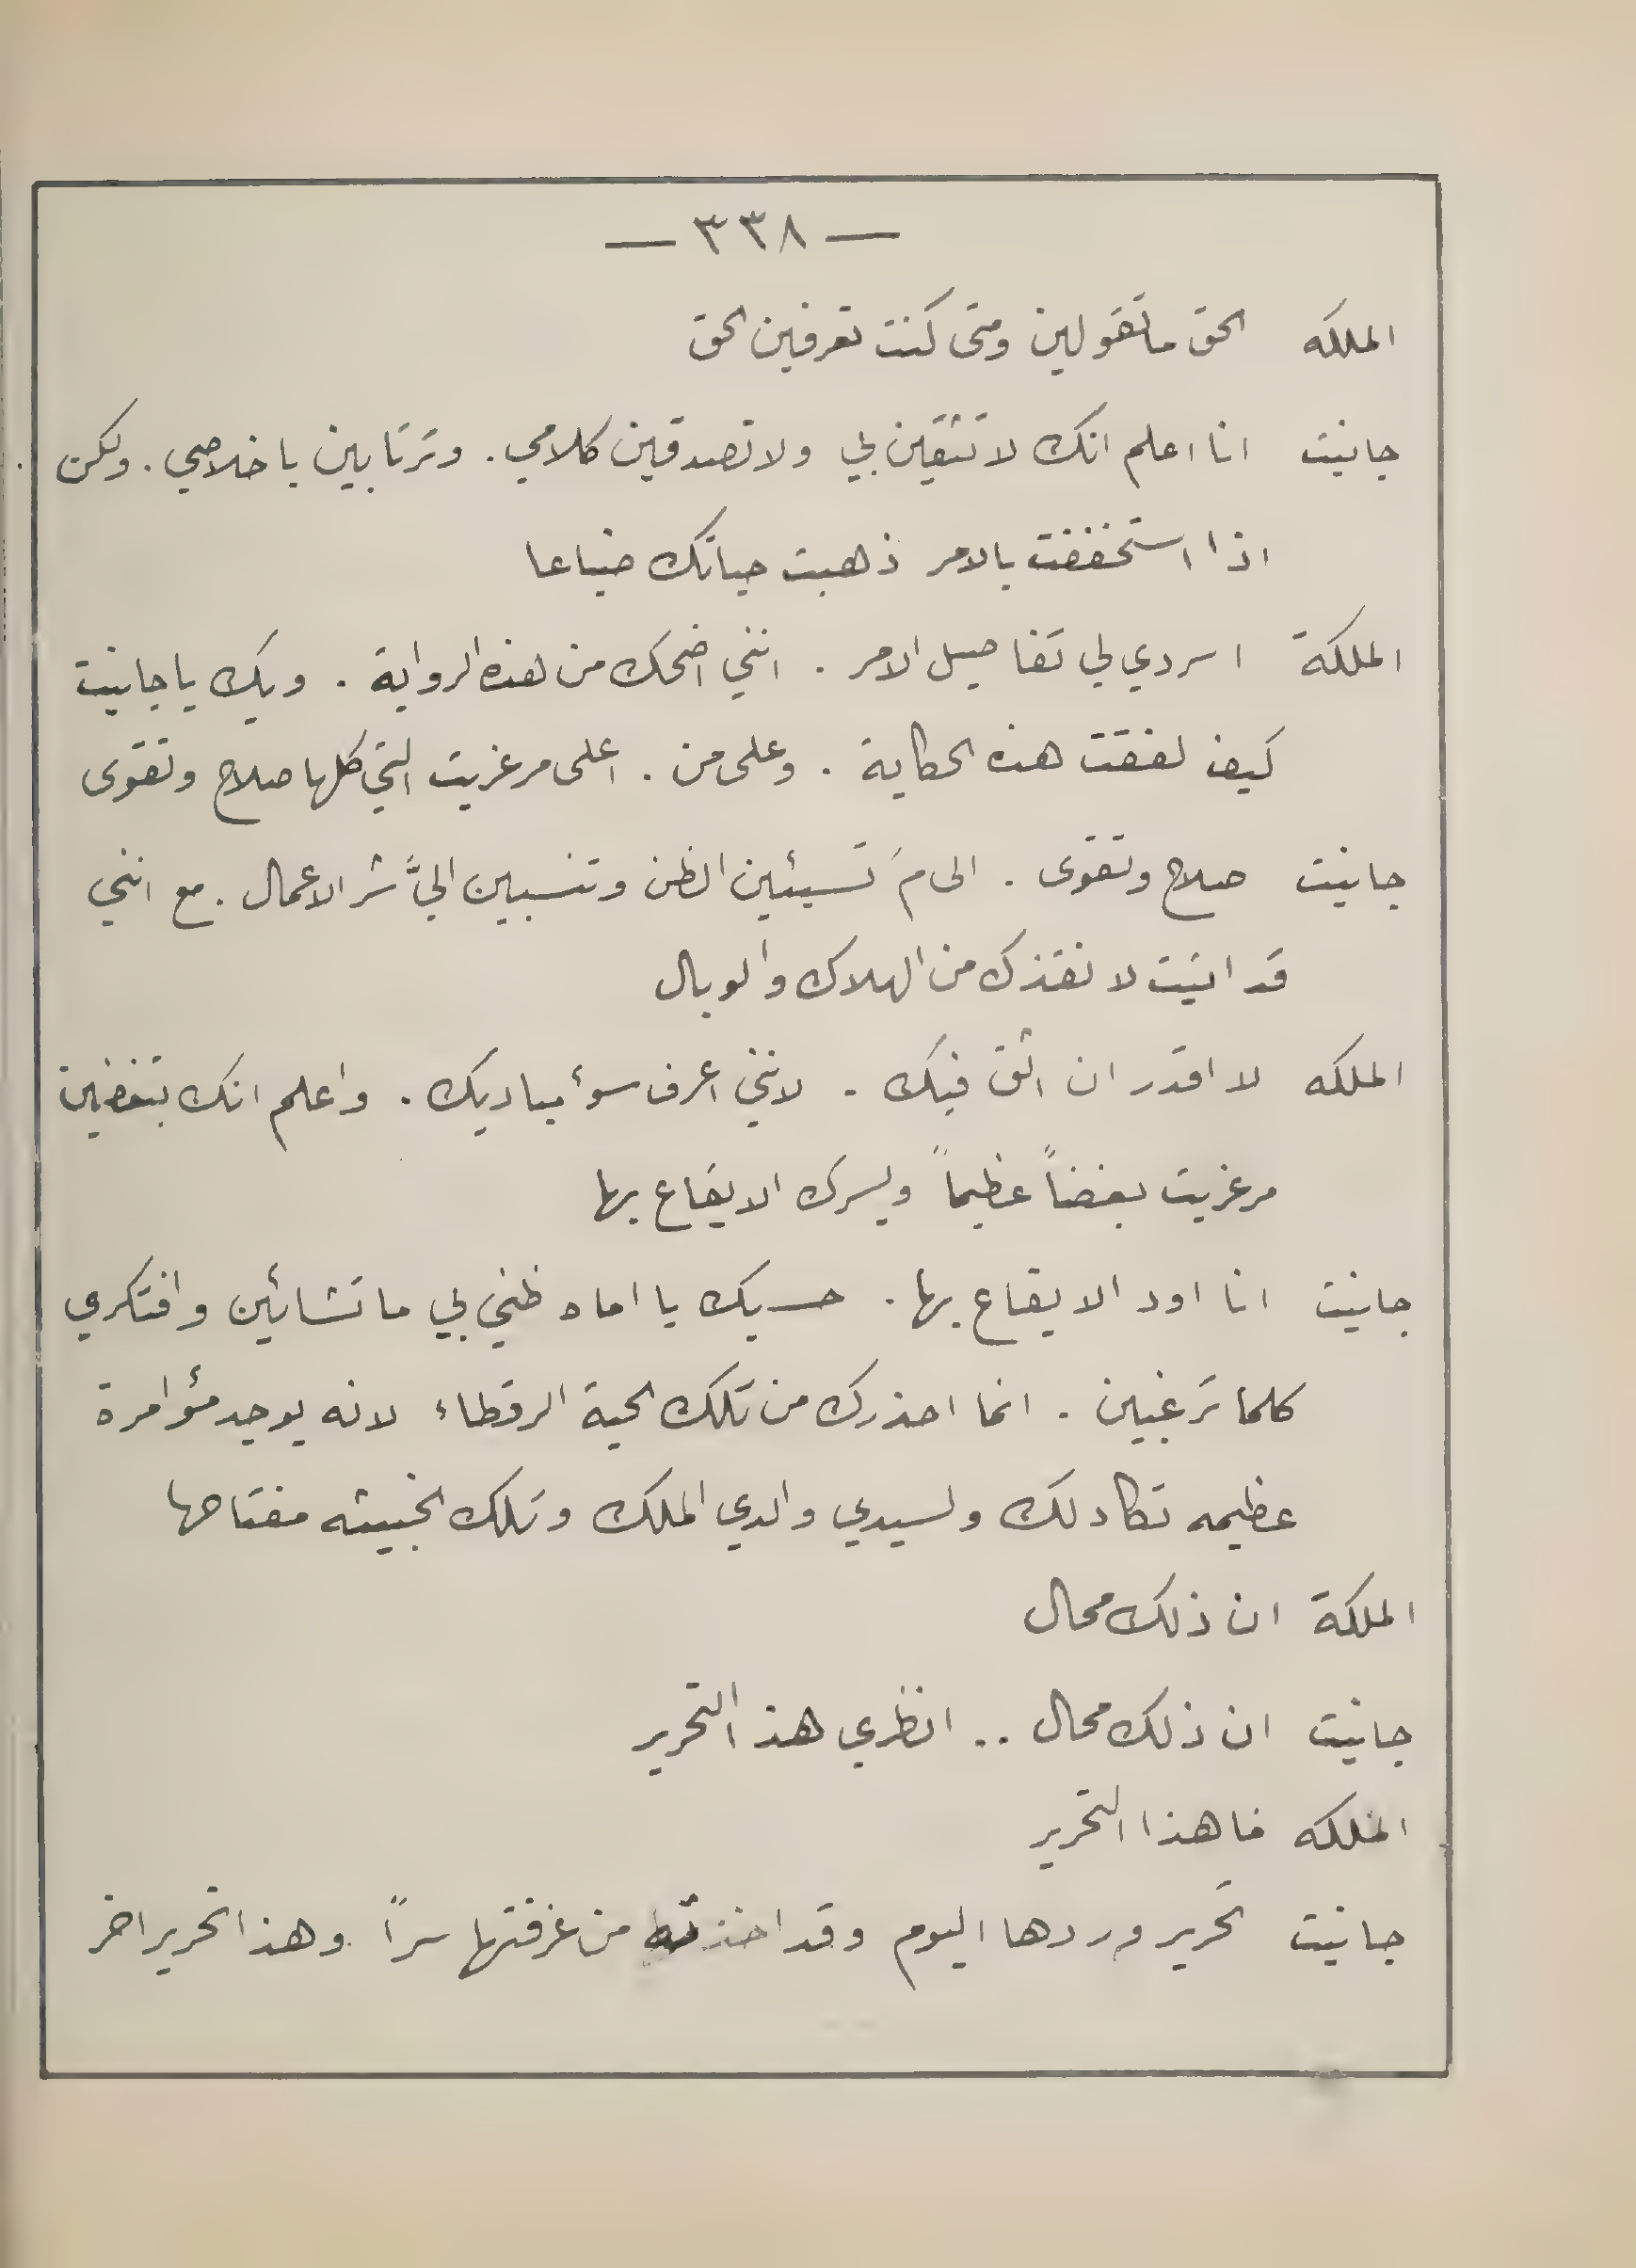 — ٣٣٨ —
الملكه الحق ما تقولين ومتى كنت تعرفين الحق
جانيت انا اعلم انك لا تثقين بي ولا تصدقين كلامي . وترتابين باخلاصي . ولكن .
اذا استخففت بالامر ذهبت حياتك ضياعا
الملكة اسردي لي تفاصيل الامر . انني اضحك من هذه الرواية . ويك يا جانيت
كيف لفقت هذه الحكاية . وعلى من . اعلى مرغريت التي كلها صلاح وتقوى
جانيت صلاح وتقوى . الى مَ تسيئين الظن وتنسبين اليَّ شر الاعمال . مع انني
قد اتيت لانقذك من الهلاك والوبال
الملكه لا اقدر ان اثق فيك . لانني اعرف سوٴ مباديك . واعلم انك تبغضين
مرغريت بغضاً عظيماً ويسرك الايقاع بها
جانيت انا اود الايقاع بها . حسبك يا اماه ظني بي ما تشائين وافتكري
كلما ترغبين . انما احذرك من تلك الحية الرقطاء لانه يوجد مؤامرة
عظيمه تكاد لك ولسيدي والدي الملك وتلك الخبيثه مفتاحها
الملكة ان ذلك محال
جانيت ان ذلك محال .. انظري هذا التحرير
الملكه فما هذا التحرير
جانيت تحرير وردها اليوم وقد اخذته من غرفتها سراً وهذا تحرير اخر